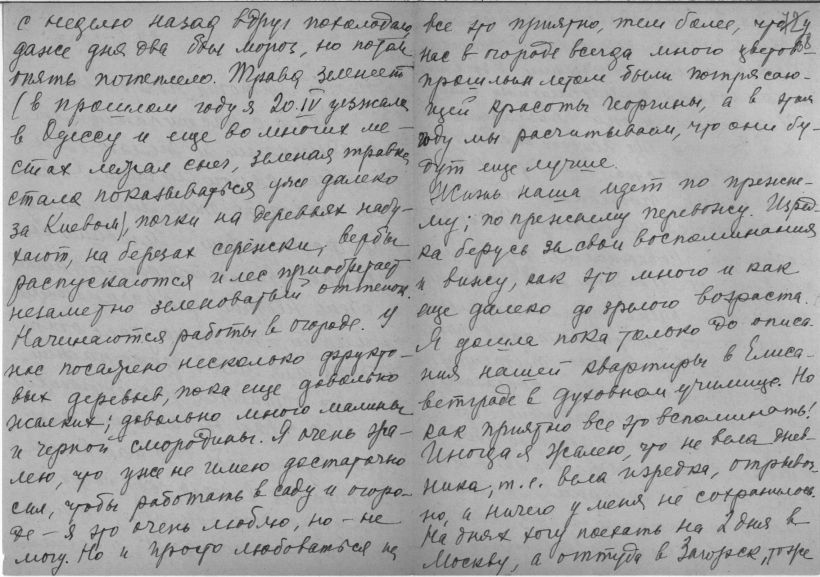 с неделю назад вдруг похолодало,
даже дня два был мороз, но потом
опять потеплело. Трава зеленеет
(в прошлом году я 20.IV уезжала
в Одессу и еще во многих ме-
стах лежал снег, зеленая травка
стала показываться уже далеко
за Киевом), почки на деревьях набу-
хают, на березах серёжки, вербы
распускаются и лес приобретает
незаметно зеленоватый оттенок.
Начинаются работы в огороде. У
нас посажено несколько фрукто-
вых деревьев, пока еще довольно
жалких; довольно много малины
и черной смородины. Я очень жа-
лею, что уже не имею достаточно
сил, чтобы работать в саду и огоро-
де – я это очень люблю, но – не
могу. Но и просто любоваться на
все это приятно, тем более, что у
нас в огороде всегда много цветов –
прошлым летом были потрясаю-
щей красоты георгины, а в этом
году мы расчитываем, что они бу-
дут еще лучше.
Жизнь наша идет по прежне-
му; по прежнему перевожу. Изред-
ка берусь за свои воспоминания
и вижу, как это много и как
еще далеко до зрелого возраста.
Я дошла пока только до описа-
ния нашей квартиры в Елиса-
ветграде в духовном училище. Но
как приятно все это вспоминать!
Иногда я жалею, что не вела днев-
ника, т.е. вела изредка, отрывоч-
но, и ничего у меня не сохранилось.
На днях хочу поехать на 2 дня в
Москву, а оттуда в Загорск, тоже